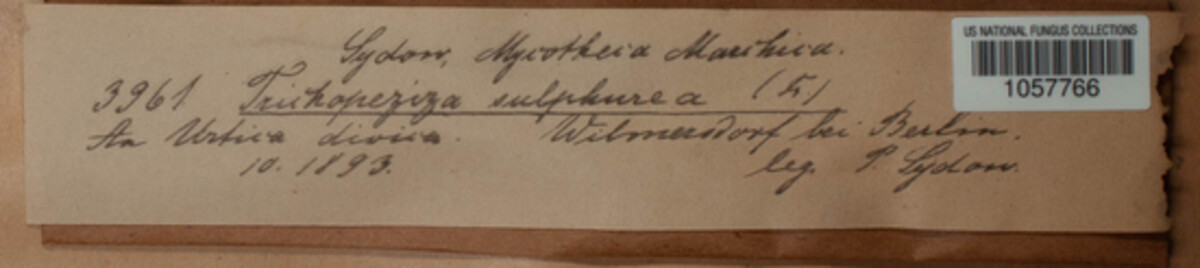 Sydow, Mycotheca Marchica.
US NATIONAL FUNGUS COLLECTIONS
1057766
3961. Trichopeziza sulphurea (Fr.)
An Urtica dioica. Wilmersdorf bei Berlin.
10. 1893. leg. P. Sydow.